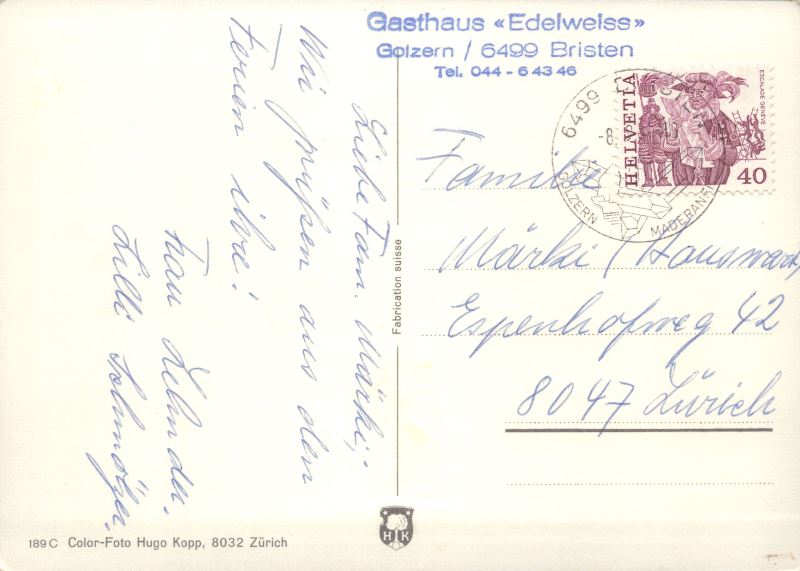 Gasthaus «Edelweiss»
Golzern / 6499 Bristen
Tel. 044 - 6 43 46
6499
-8.
GOLZERN MADERANERTAL
HELVETIA
ESCALADE GENÈVE
40
Liebe Fam. Märki,
Wir grüßen aus den
Ferien ihre!
Frau
Lilli
Familie
Märki / Hauswart
Espenhofweg 42
8047 Zürich
Fabrication suisse
HK
189 C Color-Foto Hugo Kopp, 8032 Zürich